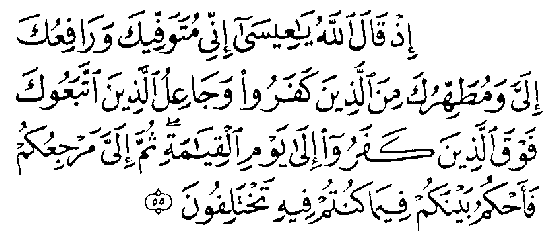 إِذْ قَالَ ٱللَّهُ يَٰعِيسَىٰٓ إِنِّى مُتَوَفِّيكَ وَرَافِعُكَ
إِلَىَّ وَمُطَهِّرُكَ مِنَ ٱلَّذِينَ كَفَرُوا۟ وَجَاعِلُ ٱلَّذِينَ ٱتَّبَعُوكَ
فَوْقَ ٱلَّذِينَ كَفَرُوٓا۟ إِلَىٰ يَوْمِ ٱلْقِيَٰمَةِ ۖ ثُمَّ إِلَىَّ مَرْجِعُكُمْ
فَأَحْكُمُ بَيْنَكُمْ فِيمَا كُنتُمْ فِيهِ تَخْتَلِفُونَ ٥٥